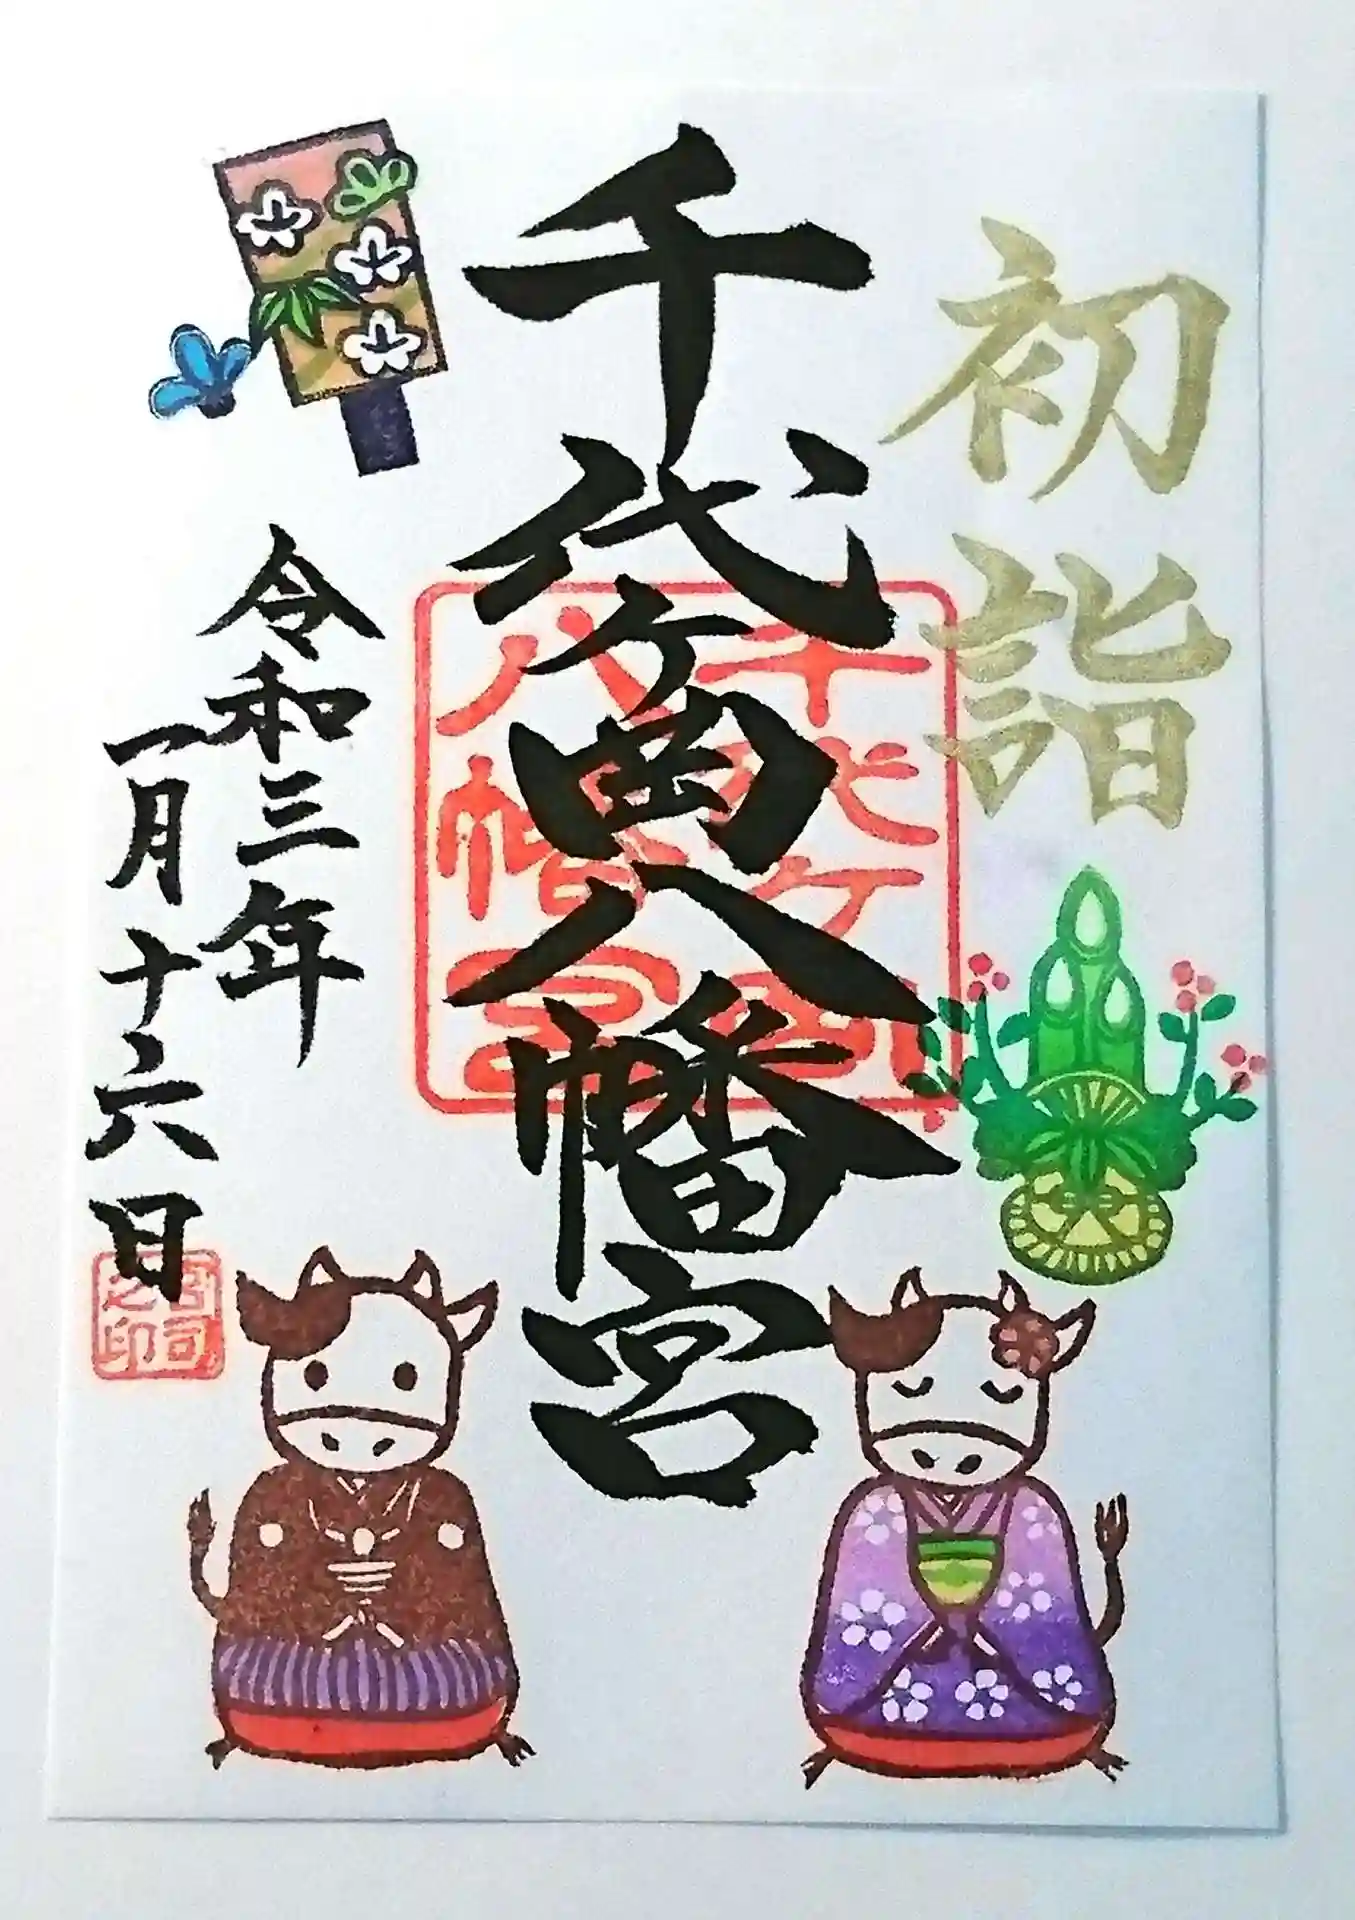 初詣
千代ケ岡八幡宮
千代ケ岡
八幡宮
令和三年
一月十六日
宮司
之印